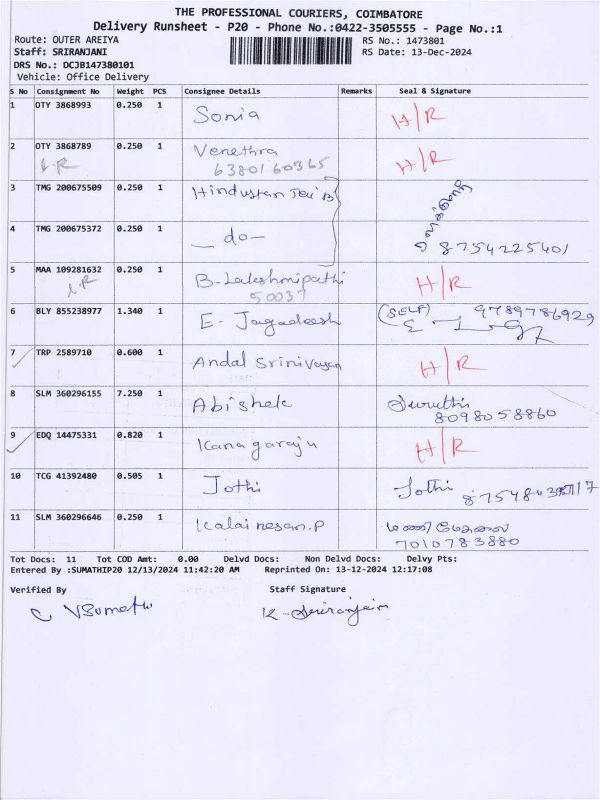 THE PROFESSIONAL COURIERS, COIMBATORE
Delivery Runsheet - P20 - Phone No.:0422-3505555 - Page No.:1
Route: OUTER AREIYA RS No.: 1473801
Staff: SRIRANJANI RS Date: 13-Dec-2024
DRS No.: DCJB147380101
Vehicle: Office Delivery
S No Consignment No Weight PCS Consignee Details Remarks Seal & Signature
1 OTY 3868993 0.250 1 Sonia H/R
2 OTY 3868789 0.250 1 Venethra H/R
L.R 6380160365
3 TMG 200675509 0.250 1 Hindustan
4 TMG 200675372 0.250 1 — do — 8754225401
5 MAA 109281632 0.250 1 B-Lakshmipathi H/R
L.R 50037
6 BLY 855238977 1.340 1 E. Jagadeesh (SELF) 9789786929
7 TRP 2589710 0.600 1 Andal Srinivasan H/R
8 SLM 360296155 7.250 1 Abishek Sruthi
8098058860
9 EDQ 14475331 0.820 1 Kanagaraju H/R
10 TCG 41392480 0.505 1 Jothi Jothi
11 SLM 360296646 0.250 1 Kalainesan.P
7010783880
Tot Docs: 11 Tot COD Amt: 0.00 Delvd Docs: Non Delvd Docs: Delvy Pts:
Entered By :SUMATHIP20 12/13/2024 11:42:20 AM Reprinted On: 13-12-2024 12:17:08
Verified By Staff Signature
K-Sriranjani